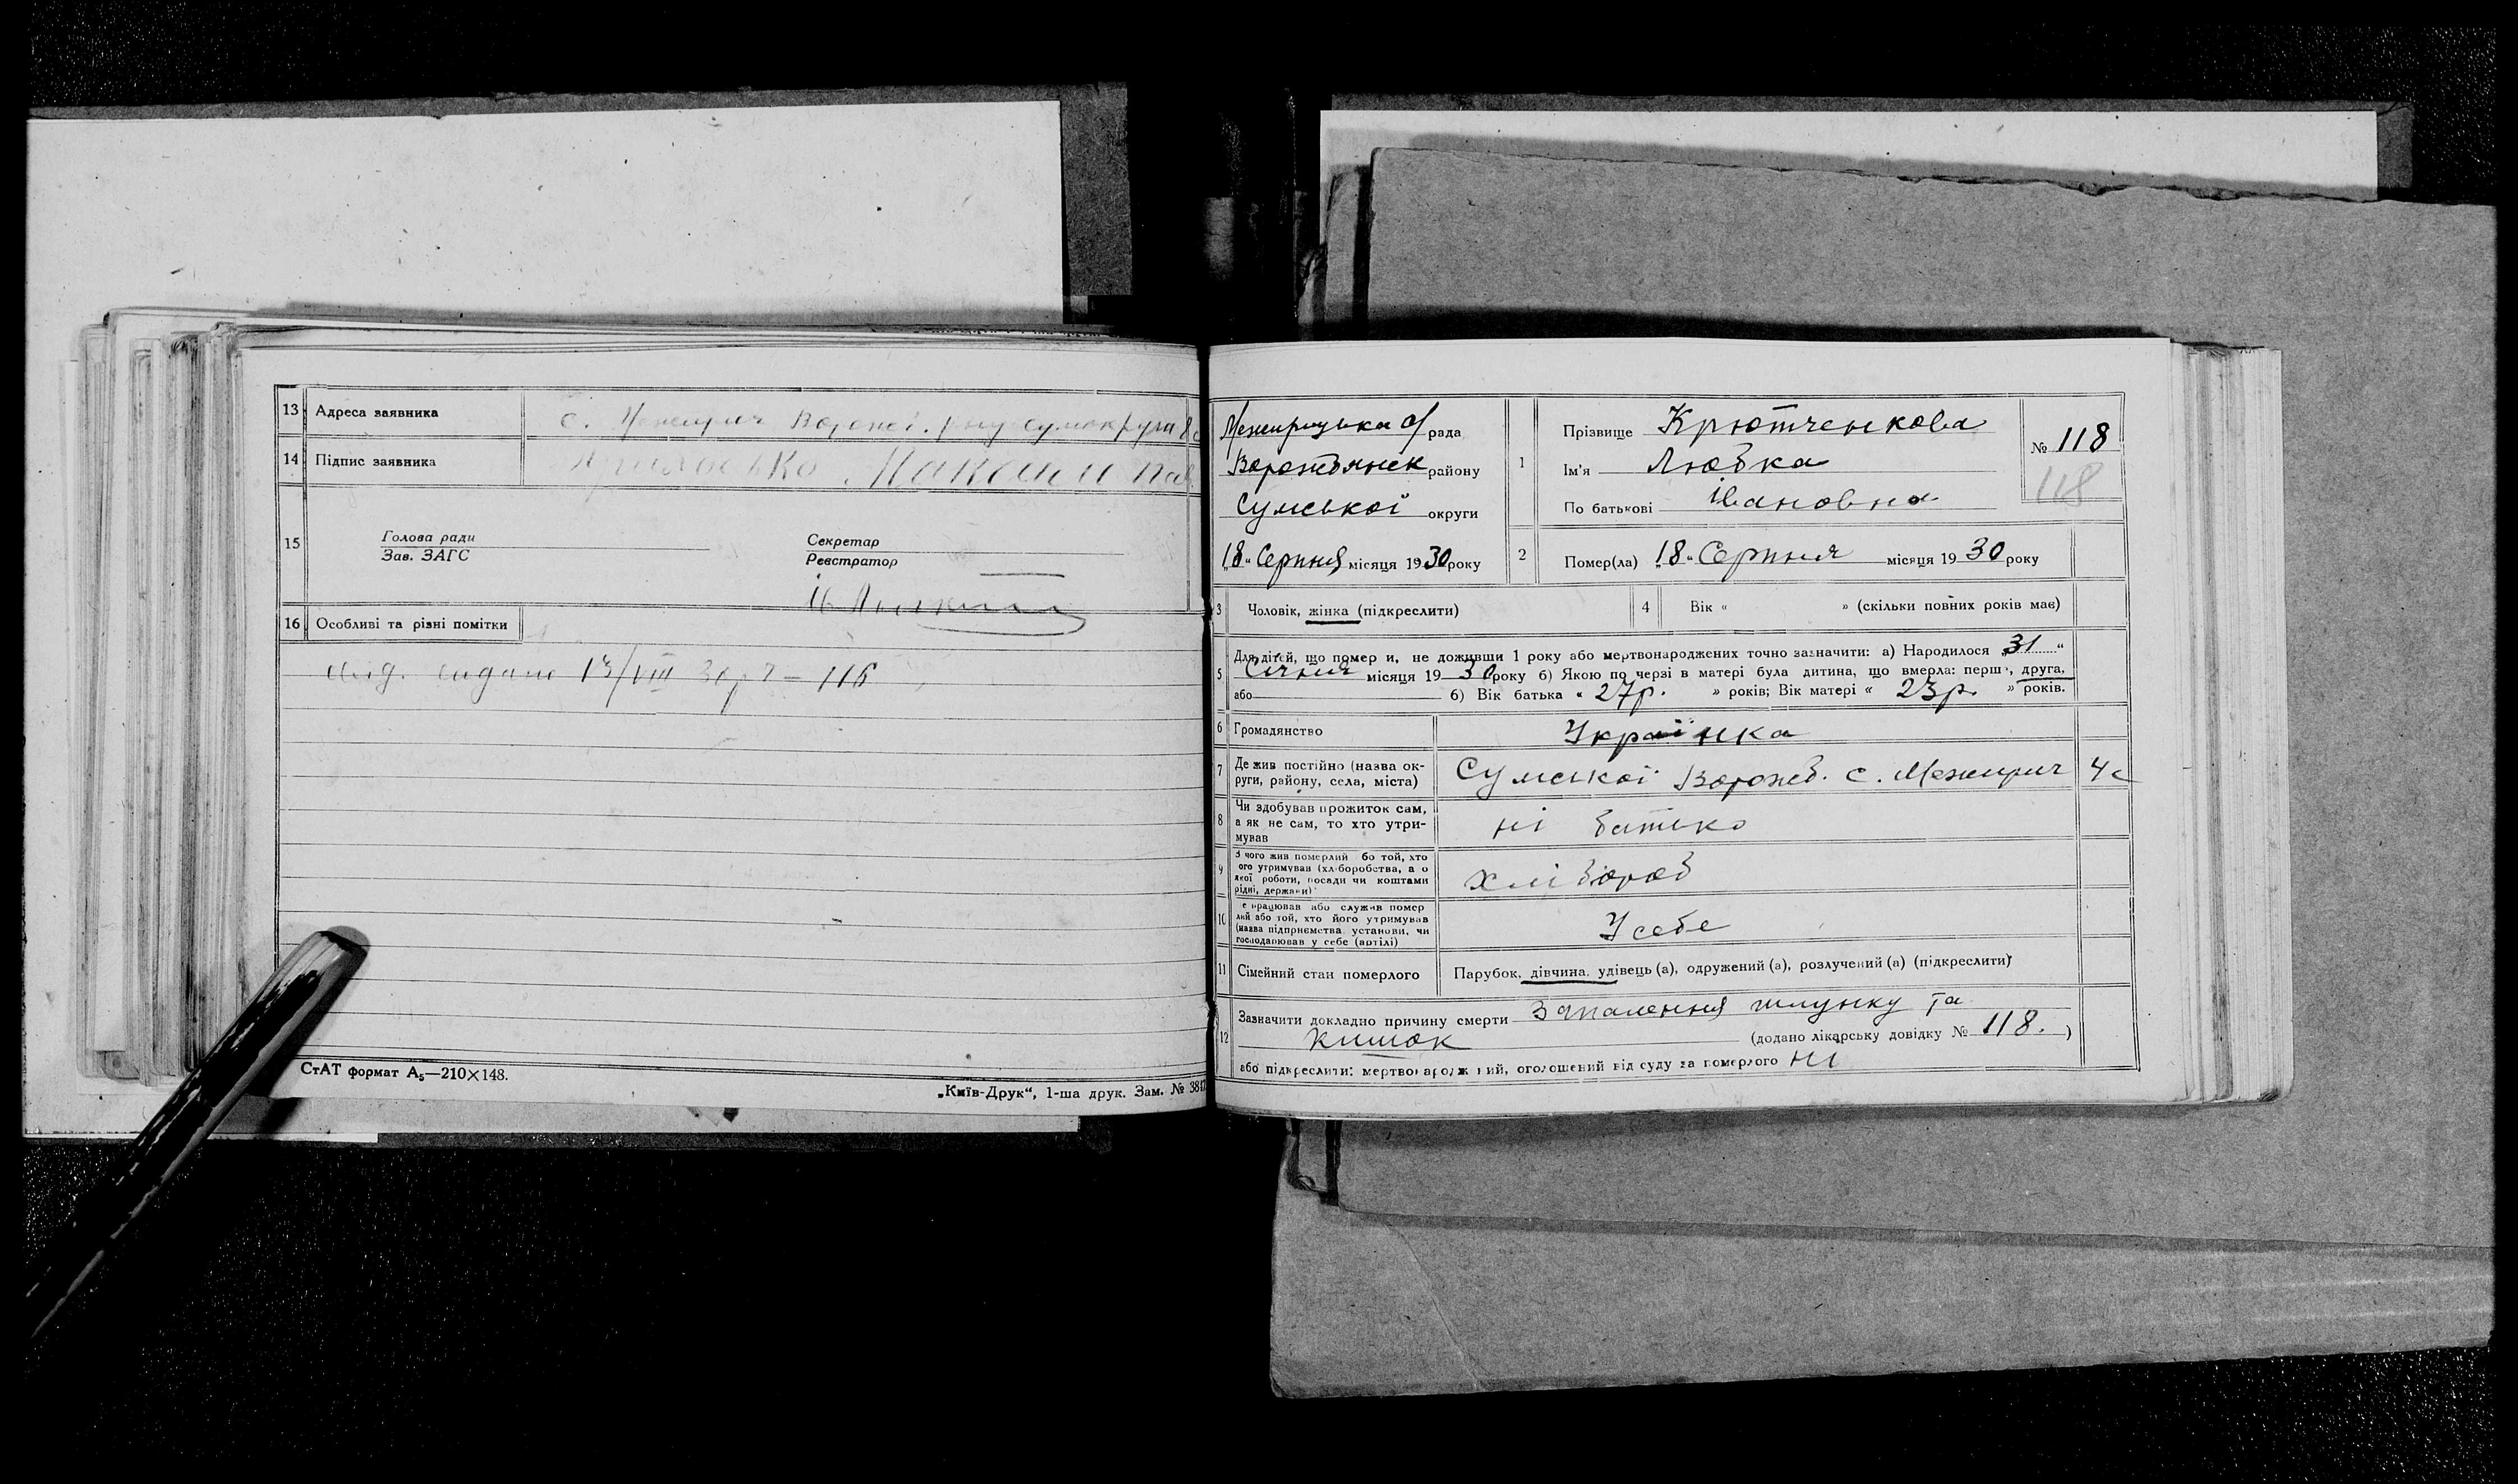 13 Адреса заявника с. Межирич Ворожб. р-ну Сумокруги
14 Підпис заявника
15 Голова ради Секретар
Зав. ЗАГС Реєстратор
16 Особливі та різні помітки
видано 13/VIII 30 р 116
СтАТ формат А₅—210×148.
„Київ-Друк“, 1-ша друк. Зам. №
Межирицька рада
Ворожбянськ району
Сумської округи
„18“ Серпня місяця 1930 року
1 Прізвище Крютченкова
Ім'я Любка
По батькові Івановна
№ 118
118
2 Помер(ла) „18“ Серпня місяця 1930 року
3 Чоловік, жінка (підкреслити) 4 Вік « » (скільки повних років має)
5 Для дітей, що помер и, не доживши 1 року або мертвонароджених точно зазначити: а) Народилося „31“
Січня місяця 1930 року б) Якою по черзі в матері була дитина, що вмерла: перша, друга,
або б) Вік батька « 27р. » років; Вік матері « 23р. » років.
6 Громадянство Українка
7 Де жив постійно (назва ок-
руги, району, села, міста) Сумської Ворожб. с. Межирич
8 Чи здобував прожиток сам,
а як не сам, то хто утри-
мував ні батько
9 З чого жив померлий бо той, хто
ого утримував (хліборобства, а о
якої роботи, посади чи коштами
рідні, держави) хлібороб
10 е працював або служив помер
лий або той, хто його утримував
(назва підприємства, установи, чи
господарював у себе (артілі) У себе
11 Сімейний стан померлого Парубок, дівчина, удівець (а), одружений (а), розлучений (а) (підкреслити)
12 Зазначити докладно причину смерти Запалення шлунку та
кишок (додано лікарську довідку № 118.)
або підкреслити: мертвонароджений, оголошений від суду за померлого ні